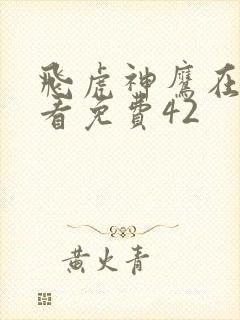 飛虎神鷹在
看免費42
黃火青